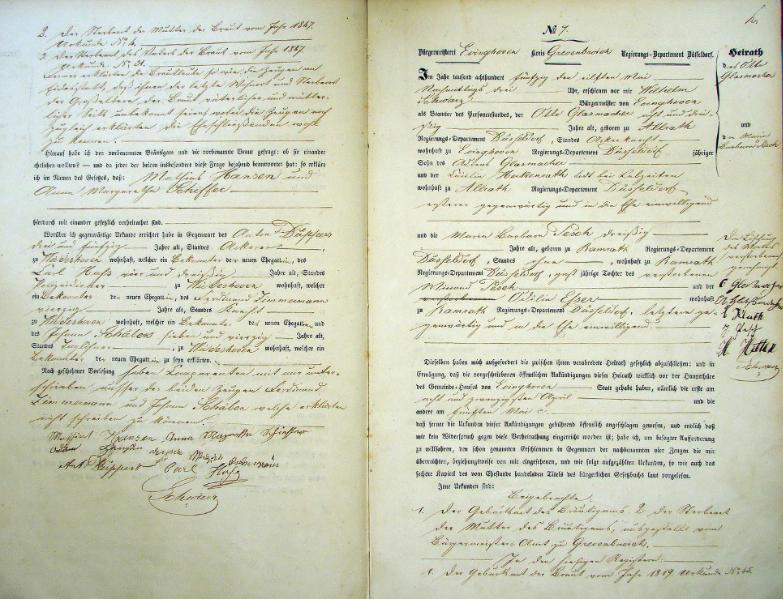 2. Der Sterbeact der Mutter der Braut vom Jahr 1847.
Urkunde No.
3. Der Sterbeact des Vaters der Braut vom Jahr 1847
Urkunde No. 31.
erklärten die Brautleute so wie die Zeugen an
Eidesstatt, daß ihnen der letzte Wohn und Sterbeort
der Großeltern der Braut väterlicher und mütter-
licher Seits unbekannt seien, wobei die Zeugen noch
zugleich erklärten die Eheschließenden wohl
zu kennen.
Hierauf habe ich den vorbenannten Bräutigam und die vorbenannte Braut gefragt: ob sie einander
ehelichen wollten? – und da jeder der beiden insbesondere diese Frage bejahend beantwortet hat: so erkläre
ich im Namen des Gesetzes, daß: Mathias Hansen und
Anna Margaretha Scheffer
hierdurch mit einander gesetzlich verheirathet sind.
Worüber ich gegenwärtige Urkunde errichtet habe in Gegenwart des Anton Düppers
drei und fünfzig Jahre alt, Standes Ackerer
zu Widdeshoven wohnhaft, welcher ein Bekannter der neuen Ehegatten, des
Carl Hass vier und dreißig Jahre alt, Standes
Polizeidiener zu Widdeshoven wohnhaft, welcher
ein Bekannter de neuen Ehegatten, des Ferdinand Zimmermann
vierzig Jahre alt, Standes Knecht
zu Widdeshoven wohnhaft, welcher ein Bekannter des neuen Ehegatten, und
des Johann Schaben sieben und vierzig Jahre alt,
Standes zu Widdeshoven wohnhaft, welcher ein
Bekannter de neuen Ehegatten, zu seyn erklären.
Nach geschehener Vorlesung haben Comparenten mit mir unter-
schrieben ausser der beiden Zeugen Ferdinand
Zimmermann und Johann Schaben welche erklärten
nicht schreiben zu können.
Mathias Hansen Anna Margaretha Scheffer
Ant. Düppers Carl Hass
Schwarz
No. 7.
Bürgermeisterei Evinghoven Kreis Grevenbroich Regierungs-Departement Düsseldorf.
Im Jahr tausend achthundert fünfzig den elften Mai
Nachmittags drei Uhr, erschienen vor mir Wilhelm
Schwarz Bürgermeister von Evinghoven
als Beamter des Personenstandes, der Otto Glasmacher acht und drei-
ßig Jahre alt, geboren zu Allrath
Regierungs-Departement Düsseldorf, Standes Ackerer
wohnhaft zu Evinghoven Regierungs-Departement Düsseldorf jähriger
Sohn des Adolph Glasmacher
und der Cäcilia Heckenrath bei Lebzeiten
wohnhaft zu Allrath Regierungs-Departement Düsseldorf
ersterer gegenwärtig und in die Ehe einwilligend
und die Maria Barbara Pesch dreißig
Jahre alt, geboren zu Ramrath Regierungs-Departement
Düsseldorf, Standes ohne, wohnhaft zu Ramrath
Regierungs-Departement Düsseldorf, groß jährige Tochter des verstorbenen
Winand Pesch und der
verstorbenen Adelia Esser wohnhaft
zu Ramrath Regierungs-Departement Düsseldorf, letztere ge-
genwärtig und in die Ehe einwilligend
Dieselben haben mich aufgefordert die zwischen ihnen verabredete Heirath gesetzlich abzuschließen; und in
Erwägung, daß die vorgeschriebenen öffentlichen Ankündigungen dieser Heirath wirklich vor der Hauptthüre
des Gemeinde-Hauses von Evinghoven Statt gehabt haben, nämlich die erste am
acht und zwanzigsten April und die
andere am fünften Mai c.
daß ferner die Urkunden dieser Ankündigungen gebührend öffentlich angeschlagen gewesen, und endlich daß
mir kein Widerspruch gegen diese Verheirathung eingereicht worden ist; habe ich, um besagter Aufforderung
zu willfahren, den schon genannten Erschienenen in Gegenwart der nachbenannten vier Zeugen die mir
überreichten, beziehungsweise von mir eingesehenen, und wie folgt aufgezählten Urkunden, so wie auch das
sechste Kapitel des vom Ehestande handelnden Titels des bürgerlichen Gesetzbuchs laut vorgelesen.
Jene Urkunden sind:
Beigebrachte
1. Der Geburtsact des Bräutigams 2. Der Sterbeact
der Mutter des Bräutigams, ausgestellt vom
Bürgermeister Amt zu Grevenbroich.
In den hiesigen Registern.
1. Der Geburtsact der Braut vom Jahr 1819 Urkunde No. 45.
Heirath
des Otto
Glasmacher
und
der Maria
Barbara Pesch
Die Löschung
des Wortes
verstorbenen
genehmigt
O Glasmacher
Pesch
Schwarz